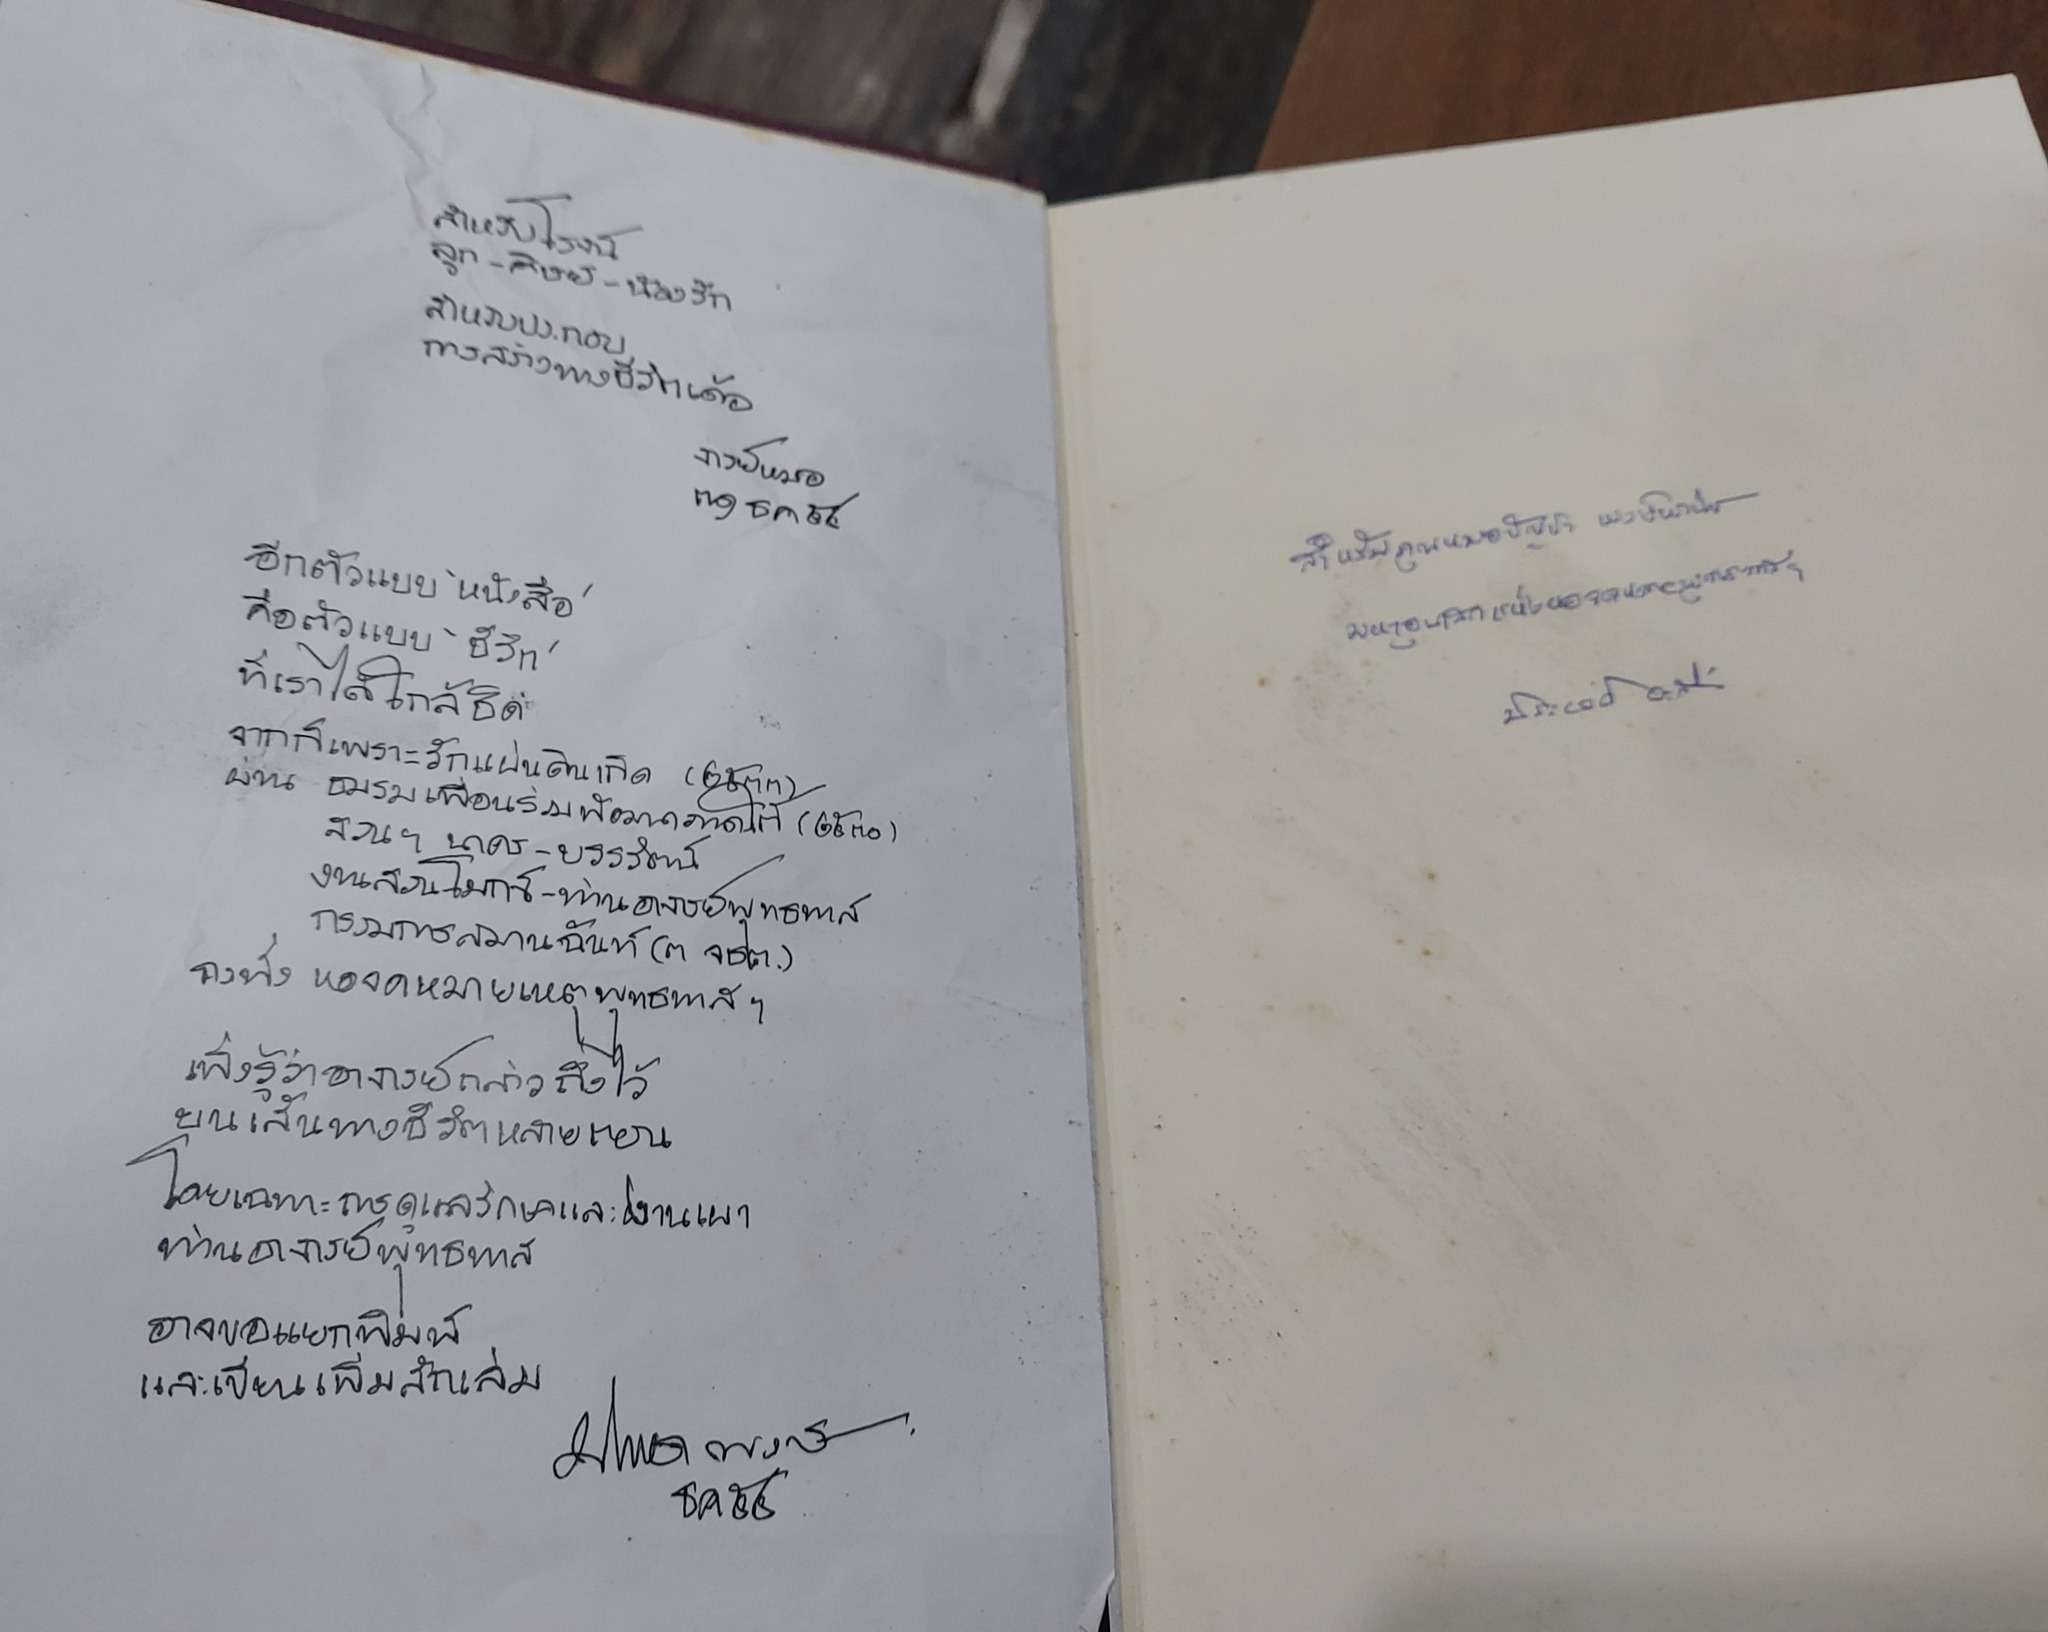 สำหรับโรจน์
ลูก-ศิษย์-น้องรัก
สำหรับประกอบ
การสร้างทางชีวิตเด้อ
จารย์หมอ
ธค ๕๕
อีกตัวแบบ 'หนังสือ'
คือตัวแบบ 'ชีวิต'
ที่เราได้ใกล้ชิด
จากก็เพราะรักแผ่นดินเกิด (๒๕๓๓)
ผ่าน ชมรมเพื่อนร่วมพัฒนาภาคใต้ (๒๕๓๐)
สวนฯ นคร-บวรรัตน์
งานสวนโมกข์-ท่านอาจารย์พุทธทาส
กรรมการสมานฉันท์ (๓ จชต.)
จนทั่ง หอจดหมายเหตุพุทธทาสฯ
เพิ่งรู้ว่าอาจารย์กล่าวถึงไว้
บนเส้นทางชีวิตหลายตอน
โดยเฉพาะการดูแลรักษาและงานเผา
ท่านอาจารย์พุทธทาส
อาจขอแยกพิมพ์
และเขียนเพิ่มสักเล่ม
ธค ๕๕
สำหรับคุณหมอบัญชา พงษ์พานิช
มหาอุบาสกแห่งหอจดหมายเหตุพุทธทาสฯ
ประเวศ วะสี